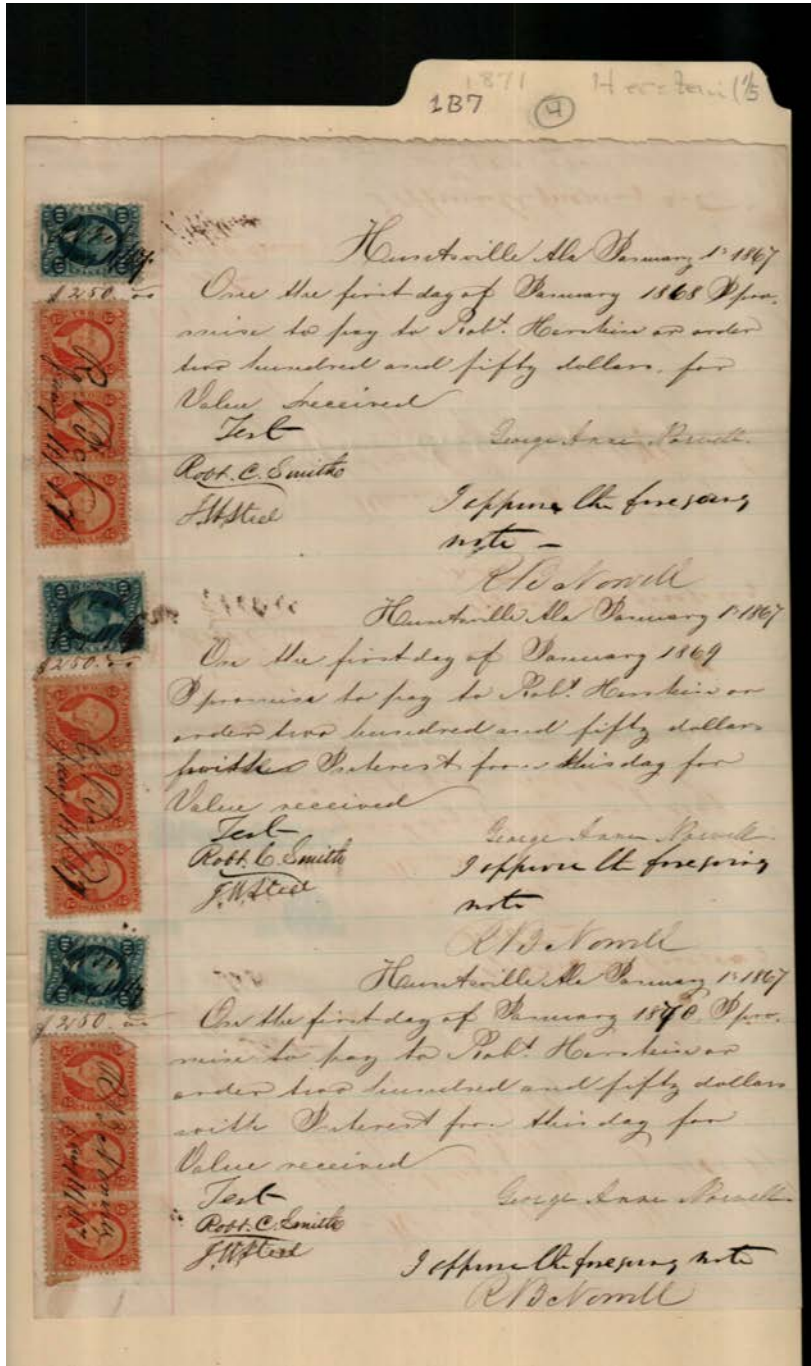 1871 Herstein (1/5
1B7 4
Huntsville Ala January 1st 1867
$250.00 One the first day of January 1868 I pro-
mise to pay to Robt. Herstein or order
two hundred and fifty dollars, for
Value received
Test George Anne Norvell
Robt. C. Smith
J.W. Steel I approve the foregoing
note —
R B Norvell
Huntsville Ala January 1st 1867
$250.00 On the first day of January 1869
I promise to pay to Robt. Herstein or
order two hundred and fifty dollars
with Interest from this day for
Value received
Test George Anne Norvell
Robt. C. Smith I approve the foregoing
J.W. Steel note
R B Norvell
Huntsville Ala January 1st 1867
$250.00 On the first day of January 1870, I pro-
mise to pay to Robt. Herstein or
order two hundred and fifty dollars
with Interest from this day for
Value received
Test George Anne Norvell
Robt. C. Smith
J.W. Steel I approve the foregoing note
R B Norvell